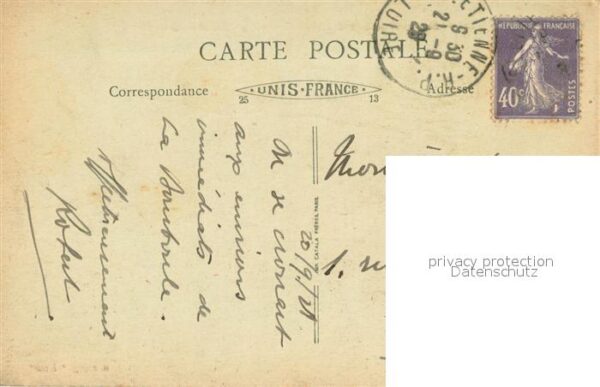 CARTE POSTALE
Correspondance
25 · UNIS-FRANCE · 13
Adresse
ETIENNE - R.P.
9 30
21 - 9
28
LOIRE
RÉPUBLIQUE FRANÇAISE
40c
POSTES
20/9/28
On se croirait
aux environs
immédiats de
La Bourboule.
Affectueusement
Robert
CATALA FRÈRES, PARIS
1.
privacy protection
Datenschutz